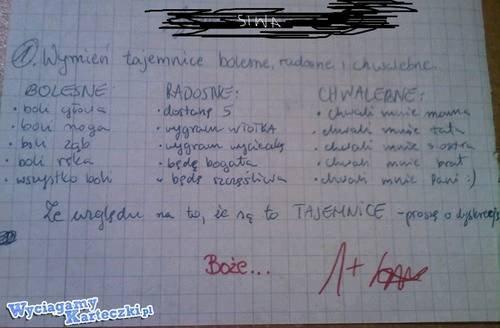 SIWA
1. Wymień tajemnice bolesne, radosne i chwalebne.
BOLESNE: RADOSNE: CHWALEBNE:
• boli głowa • dostanę 5 • chwali mnie mama
• boli noga • wygram w lotka • chwali mnie tata
• boli ząb • wygram wycieczkę • chwali mnie siostra
• boli ręka • będę bogata • chwali mnie brat
• wszystko boli • będę szczęśliwa • chwali mnie Pani :)
Ze względu na to, że są to TAJEMNICE - proszę o dyskrecję
Boże... 1+
Wyciagamy
Karteczki.pl